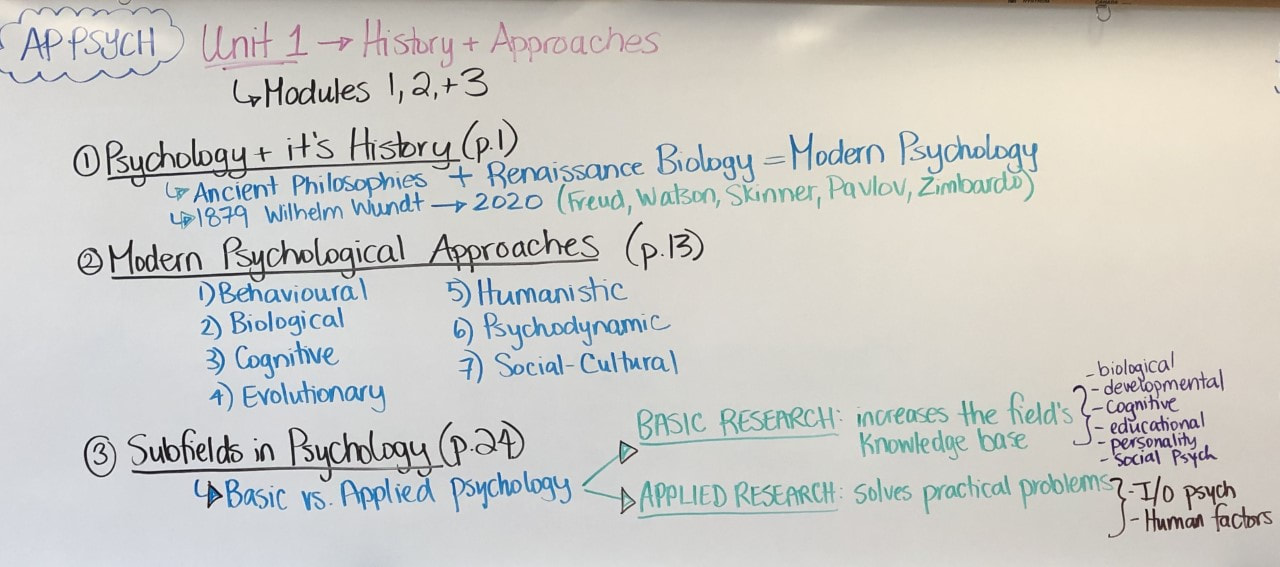 AP PSYCH Unit 1 → History + Approaches
↳ Modules 1, 2, + 3
① Psychology + it's History (p.1)
↳ Ancient Philosophies + Renaissance Biology = Modern Psychology
↳ 1879 Wilhelm Wundt → 2020 (Freud, Watson, Skinner, Pavlov, Zimbardo)
② Modern Psychological Approaches (p.13)
1) Behavioural 5) Humanistic
2) Biological 6) Psychodynamic
3) Cognitive 7) Social-Cultural
4) Evolutionary
③ Subfields in Psychology (p.24)
↳ Basic vs. Applied psychology
BASIC RESEARCH: increases the field's
Knowledge base
- biological
- developmental
- Cognitive
- educational
- personality
- Social Psych
APPLIED RESEARCH: solves practical problems
- I/O psych
- Human factors